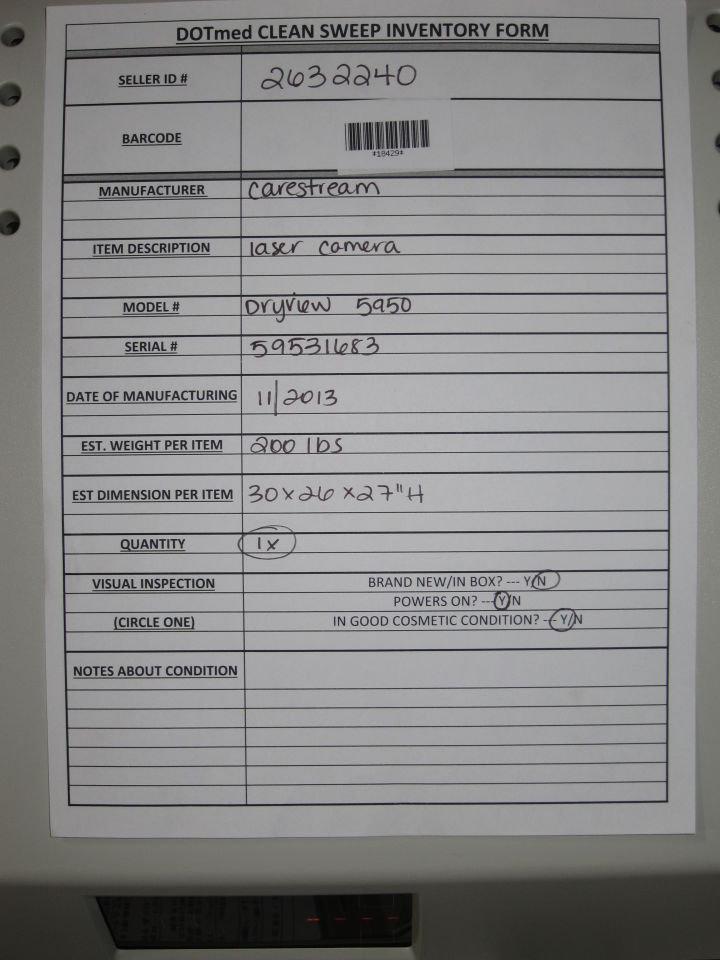 DOTmed CLEAN SWEEP INVENTORY FORM
SELLER ID # 2632240
BARCODE
*18429*
MANUFACTURER carestream
ITEM DESCRIPTION laser camera
MODEL # Dryview 5950
SERIAL # 59531683
DATE OF MANUFACTURING 11/2013
EST. WEIGHT PER ITEM 200 lbs
EST DIMENSION PER ITEM 30x26x27"H
QUANTITY 1x
VISUAL INSPECTION BRAND NEW/IN BOX? --- Y/N
POWERS ON? --- Y/N
(CIRCLE ONE) IN GOOD COSMETIC CONDITION? --- Y/N
NOTES ABOUT CONDITION